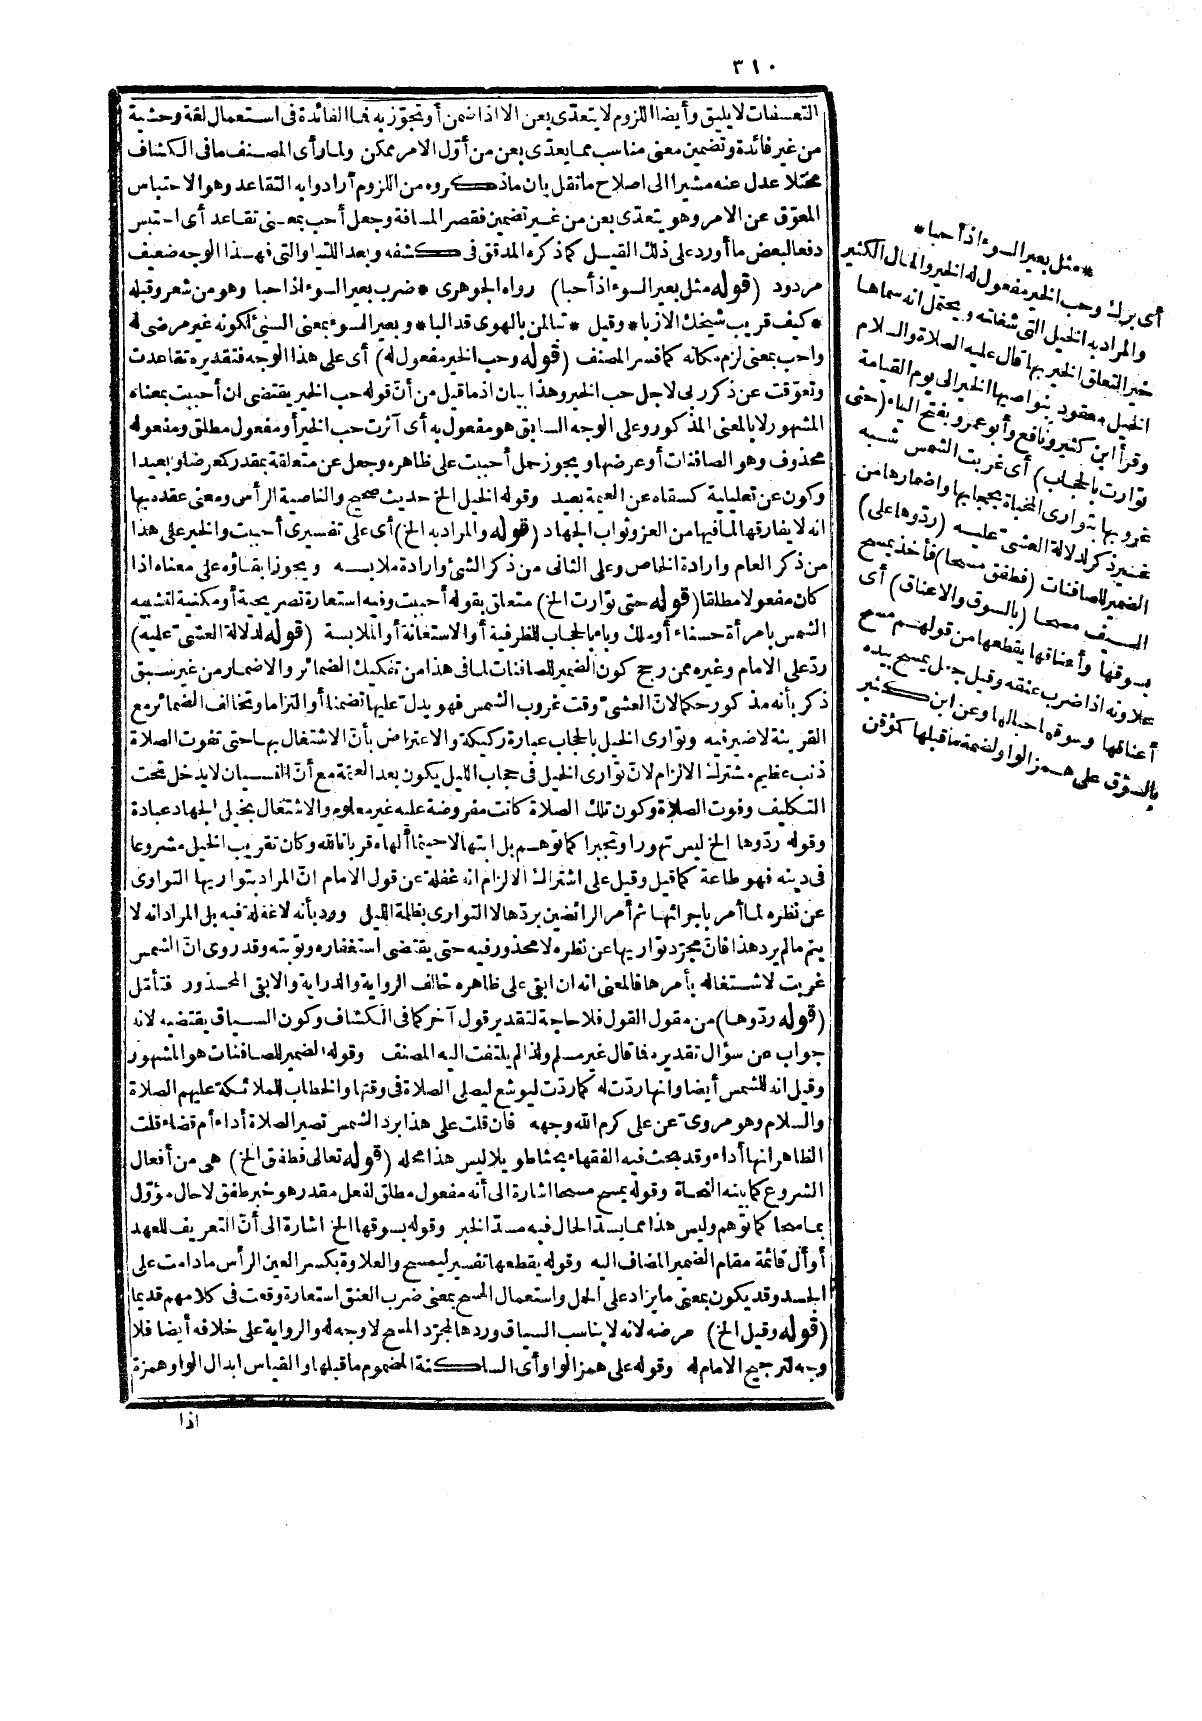 ٣١٠
التعسفات لا يليق وأيضا اللزوم لا يتعدّى بعن الا اذا ضمن أو تجوّز به فما الفائدة فى استعمال لغة وحشية
من غير فائدة وتضمين معنى مناسب مما يعدّى بعن من أوّل الامر ممكن ولما رأى المصنف ما فى الكشاف
مختلا عدل عنه مشيرا الى اصلاح ما نقل بان ماذكروه من اللزوم أرادوا به التقاعد وهو الاحتباس
المعوّق عن الامر وهو يتعدّى بعن من غير تضمين فقصر المسافة وجعل أحب بمعنى تقاعد أى احتبس
دفعا لبعض ما أورد على ذلك القيل كما ذكره المدقق فى كشفه وبعد اللتيا والتى فهذا الوجه ضعيف
مردود (قوله مثل بعير السوء اذ أحبا) رواه الجوهرى * ضرب بعير السوء اذ احبا وهو من شعر وقبله
* كيف قريت شيخك الازبا * وقيل * تبا لمن بالهون قد ألبا * وبعير السوء بمعنى السيئ لكونه غير مرضى له
واحب بمعنى لزم مكانه كما فسر المصنف (قوله وحب الخير مفعول له) أى على هذا الوجه فتقديره تقاعدت
وتعوّقت عن ذكر ربى لاجل حب الخير وهذا بيان اذ ما قيل من أنّ قوله حب الخير يقتضى ان أحببت بمعناه
المشهور لا بالمعنى المذكور وعلى الوجه السابق هو مفعول به أى آثرت حب الخير أو مفعول مطلق ومفعوله
محذوف وهو الصافنات أو عرضها ويجوز حمل أحببت على ظاهره وجعل عن متعلقة بمقدر كمعرضا وبعيدا
وكون عن تعليلية كسقاه عن العيمة بعيد وقوله الخيل الخ حديث صحيح والناصية الرأس ومعنى عقده بها
انه لا يفارقها لما فيها من العز وثواب الجهاد (قوله والمراد به الخ) أى على تفسيرى أحببت والخير على هذا
من ذكر العام وارادة الخاص وعلى الثانى من ذكر الشئ وارادة ملابسه ويجوز ابقاؤه على معناه اذا
كان مفعولا مطلقا (قوله حتى توارت الخ) متعلق بقوله أحببت وفيه استعارة تصريحية أو مكنية لتشبيه
الشمس بامرأة حسناء أو ملك وباء بالحجاب للظرفية أو الاستعانة أو الملابسة (قوله لدلالة العشىّ عليه)
ردّ على الامام وغيره ممن رجح كون الضمير للصافنات لما فى هذا من تفكيك الضمائر والاضمار من غير سبق
ذكر بأنه مذكور حكما لانّ العشىّ وقت غروب الشمس فهو يدل عليها تضمنا أو التزاما وتخالف الضمائر مع
القرينة لا ضير فيه وتوارى الخيل بالحجاب عبارة ركيكة والاعتراض بأنّ الاشتغال بها حتى تفوت الصلاة
ذنب عظيم مشترك الالزام لانّ توارى الخيل فى حجاب الليل يكون بعد العتمة مع أنّ النسيان لا يدخل تحت
التكليف وفوت الصلاة وكون تلك الصلاة كانت مفروضة عليه غير معلوم والاشتغال بخيل الجهاد عبادة
وقوله ردّوها الخ ليس تهورا وتجبرا كما توهم بل ابتهالا حيث ألهاه قربانا لله وكان تقريب الخيل مشروعا
فى دينه فهو طاعة كما قيل وقيل على اشتراك الالزام انه غفلة عن قول الامام انّ المراد بتواريها التوارى
عن نظره لما أمر باجرائها ثم أمر الرائضين بردّها لا التوارى بظلمة الليل ورد بأنه لا غفلة فيه بل المراد انه لا
يتم ما لم يرد هذا فانّ مجرّد تواريها عن نظره لا محذور فيه حتى يقتضى استغفاره وتوبته وقد روى انّ الشمس
غربت لاشتغاله بأمرها فالمعنى انه ان ابقى على ظاهره خالف الرواية والدراية والا بقى المحذور فتأمّل
(قوله ردّوها) من مقول القول فلا حاجة لتقدير قول آخر كما فى الكشاف وكون السياق يقتضيه لانه
جواب عن سؤال تقديره فما قال غير مسلم ولذا لم يلتفت اليه المصنف وقوله الضمير للصافنات هو المشهور
وقيل انه للشمس أيضا وانها ردّت له كما ردّت ليوشع ليصلى الصلاة فى وقتها والخطاب للملائكة عليهم الصلاة
والسلام وهو مروىّ عن على كرم الله وجهه فان قلت على هذا برد الشمس تصير الصلاة أداء أم قضاء قلت
الظاهر انها أداء وقد بحث فيه الفقهاء بحثا طويلا ليس هذا محله (قوله تعالى فطفق الخ) هى من أفعال
الشروع كما بينه النحاة وقوله يمسح مسحا اشارة الى أنه مفعول مطلق لفعل مقدر هو خبر طفق لا حال مؤوّل
بماسحا كما توّهم وليس هذا مما يسدّ الحال فيه مسدّ الخبر وقوله بسوقها الخ اشارة الى أنّ التعريف للعهد
أو أل قائمة مقام الضمير المضاف اليه وقوله يقطعها تفسير ليمسح والعلاوة بكسر العين الرأس مادامت على
الجسد وقد يكون بمعنى ما يزاد على الحمل واستعمال المسح بمعنى ضرب العنق استعارة وقعت فى كلامهم قديما
(قوله وقيل الخ) مرضه لانه لا يناسب السياق وردها لمجرّد المسح لا وجه له والرواية على خلافه أيضا فلا
وجه لترجيح الامام له وقوله على همز الواو أى الساكنة المضموم ما قبلها والقياس ابدال الواو همزة
اذا
* مثل بعير السوء اذ أحبا *
أى برك وحب الخير مفعول له الخير والمال الكثير
والمراد به الخيل التى شغلته ويحتمل انه سماها
خير التعلق الخير بها قال عليه الصلاة والسلام
الخيل معقود بنواصيها الخير الى يوم القيامة
وقرأ ابن كثير ونافع وأبو عمرو بفتح الياء (حتى
توارت بالحجاب) أى غربت الشمس شبه
غروبها بتوارى المخبأة بحجابها واضمارها من
غير ذكر لدلالة العشىّ عليه (ردّوها على)
الضمير للصافنات (فطفق مسحا) فأخذ يمسح
السيف مسحا (بالسوق والاعناق) أى
بسوقها وأعناقها يقطعها من قولهم مسح
علاوته اذا ضرب عنقه وقيل جعل يمسح بيده
أعناقها وسوقها حبالها وعن ابن كثير
بالسؤق على همز الواو لضمة ما قبلها كمؤقن